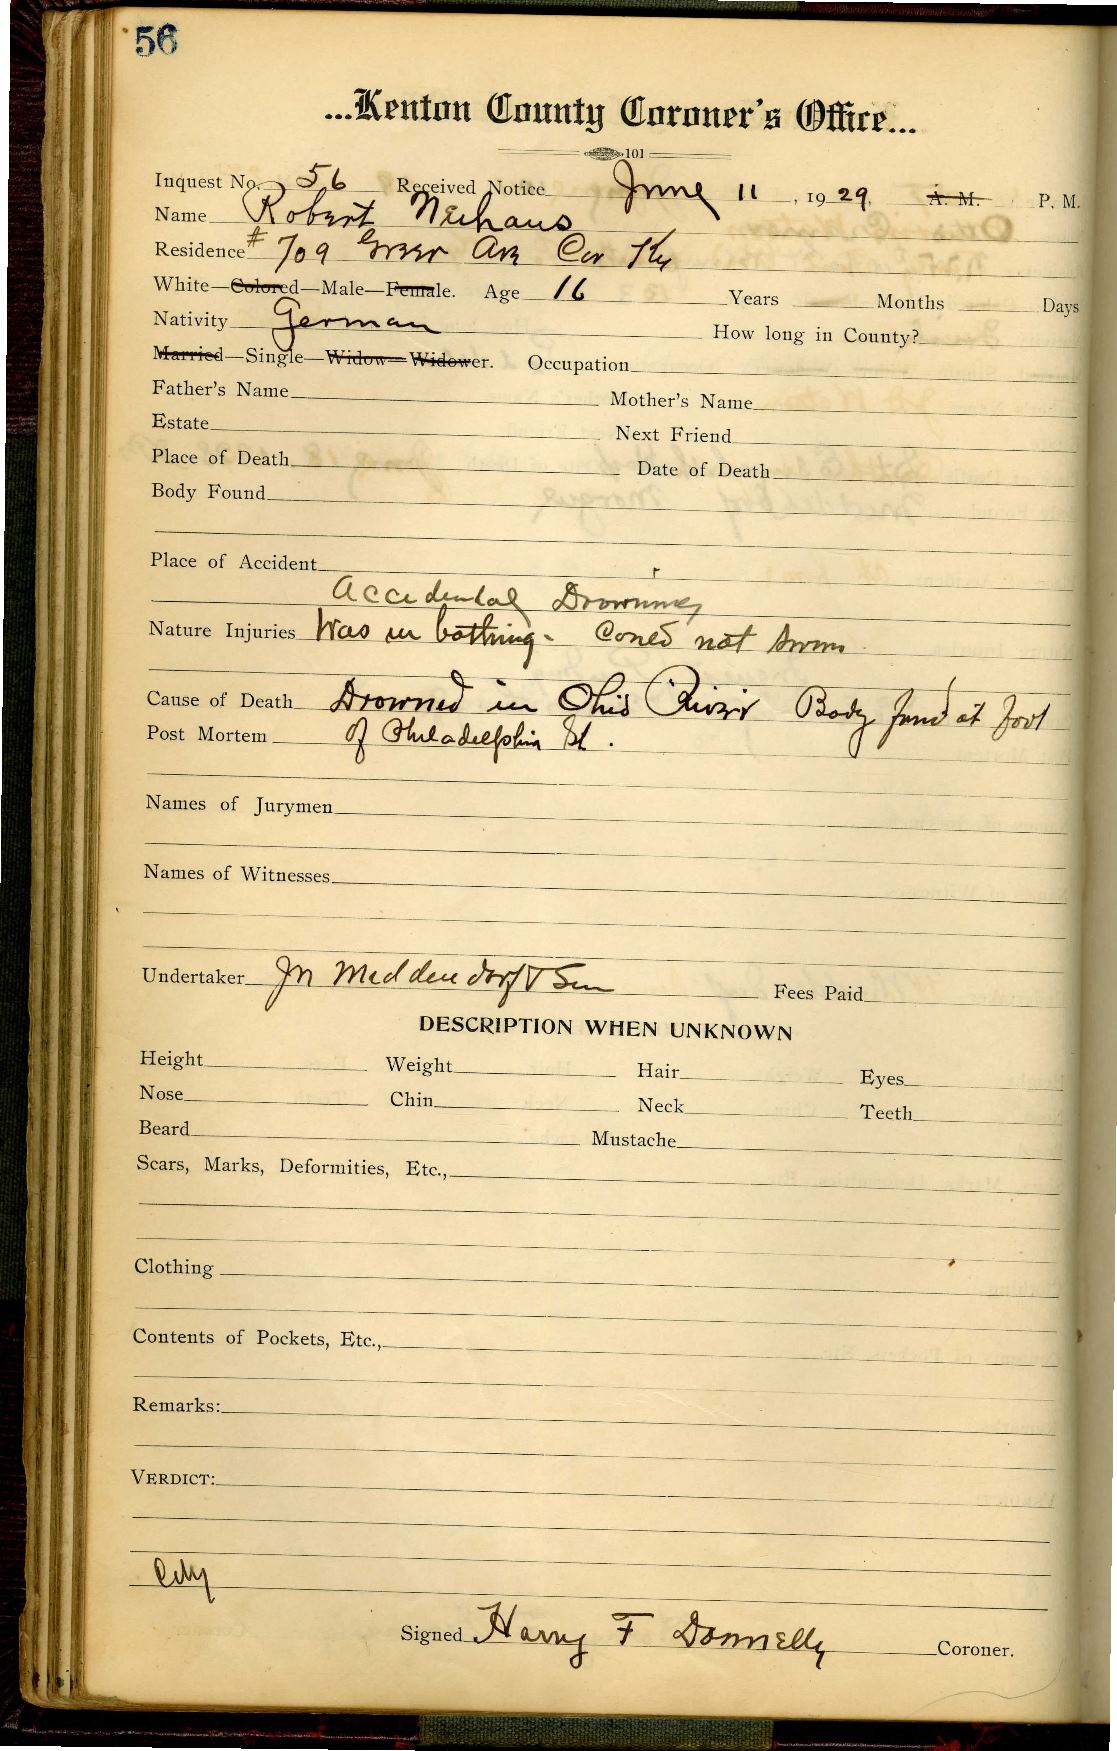 56
...Kenton County Coroner's Office...
101
Inquest No. 56 Received Notice June 11, 1929, A. M. P. M.
Name Robert Neuhaus
Residence # 709 Greer Ave Cov Ky
White—Colored—Male—Female. Age 16 Years Months Days
Nativity German How long in County?
Married—Single—Widow—Widower. Occupation
Father's Name Mother's Name
Estate Next Friend
Place of Death Date of Death
Body Found
Place of Accident
Accidental Drowning
Nature Injuries Was in bathing - Could not swim
Cause of Death Drowned in Ohio River Body found at foot
Post Mortem of Philadelphia St.
Names of Jurymen
Names of Witnesses
Undertaker Jn Middendorf & Son Fees Paid
DESCRIPTION WHEN UNKNOWN
Height Weight Hair Eyes
Nose Chin Neck Teeth
Beard Mustache
Scars, Marks, Deformities, Etc.,
Clothing
Contents of Pockets, Etc.,
Remarks:
VERDICT:
City
Signed Harry F Donnelly Coroner.